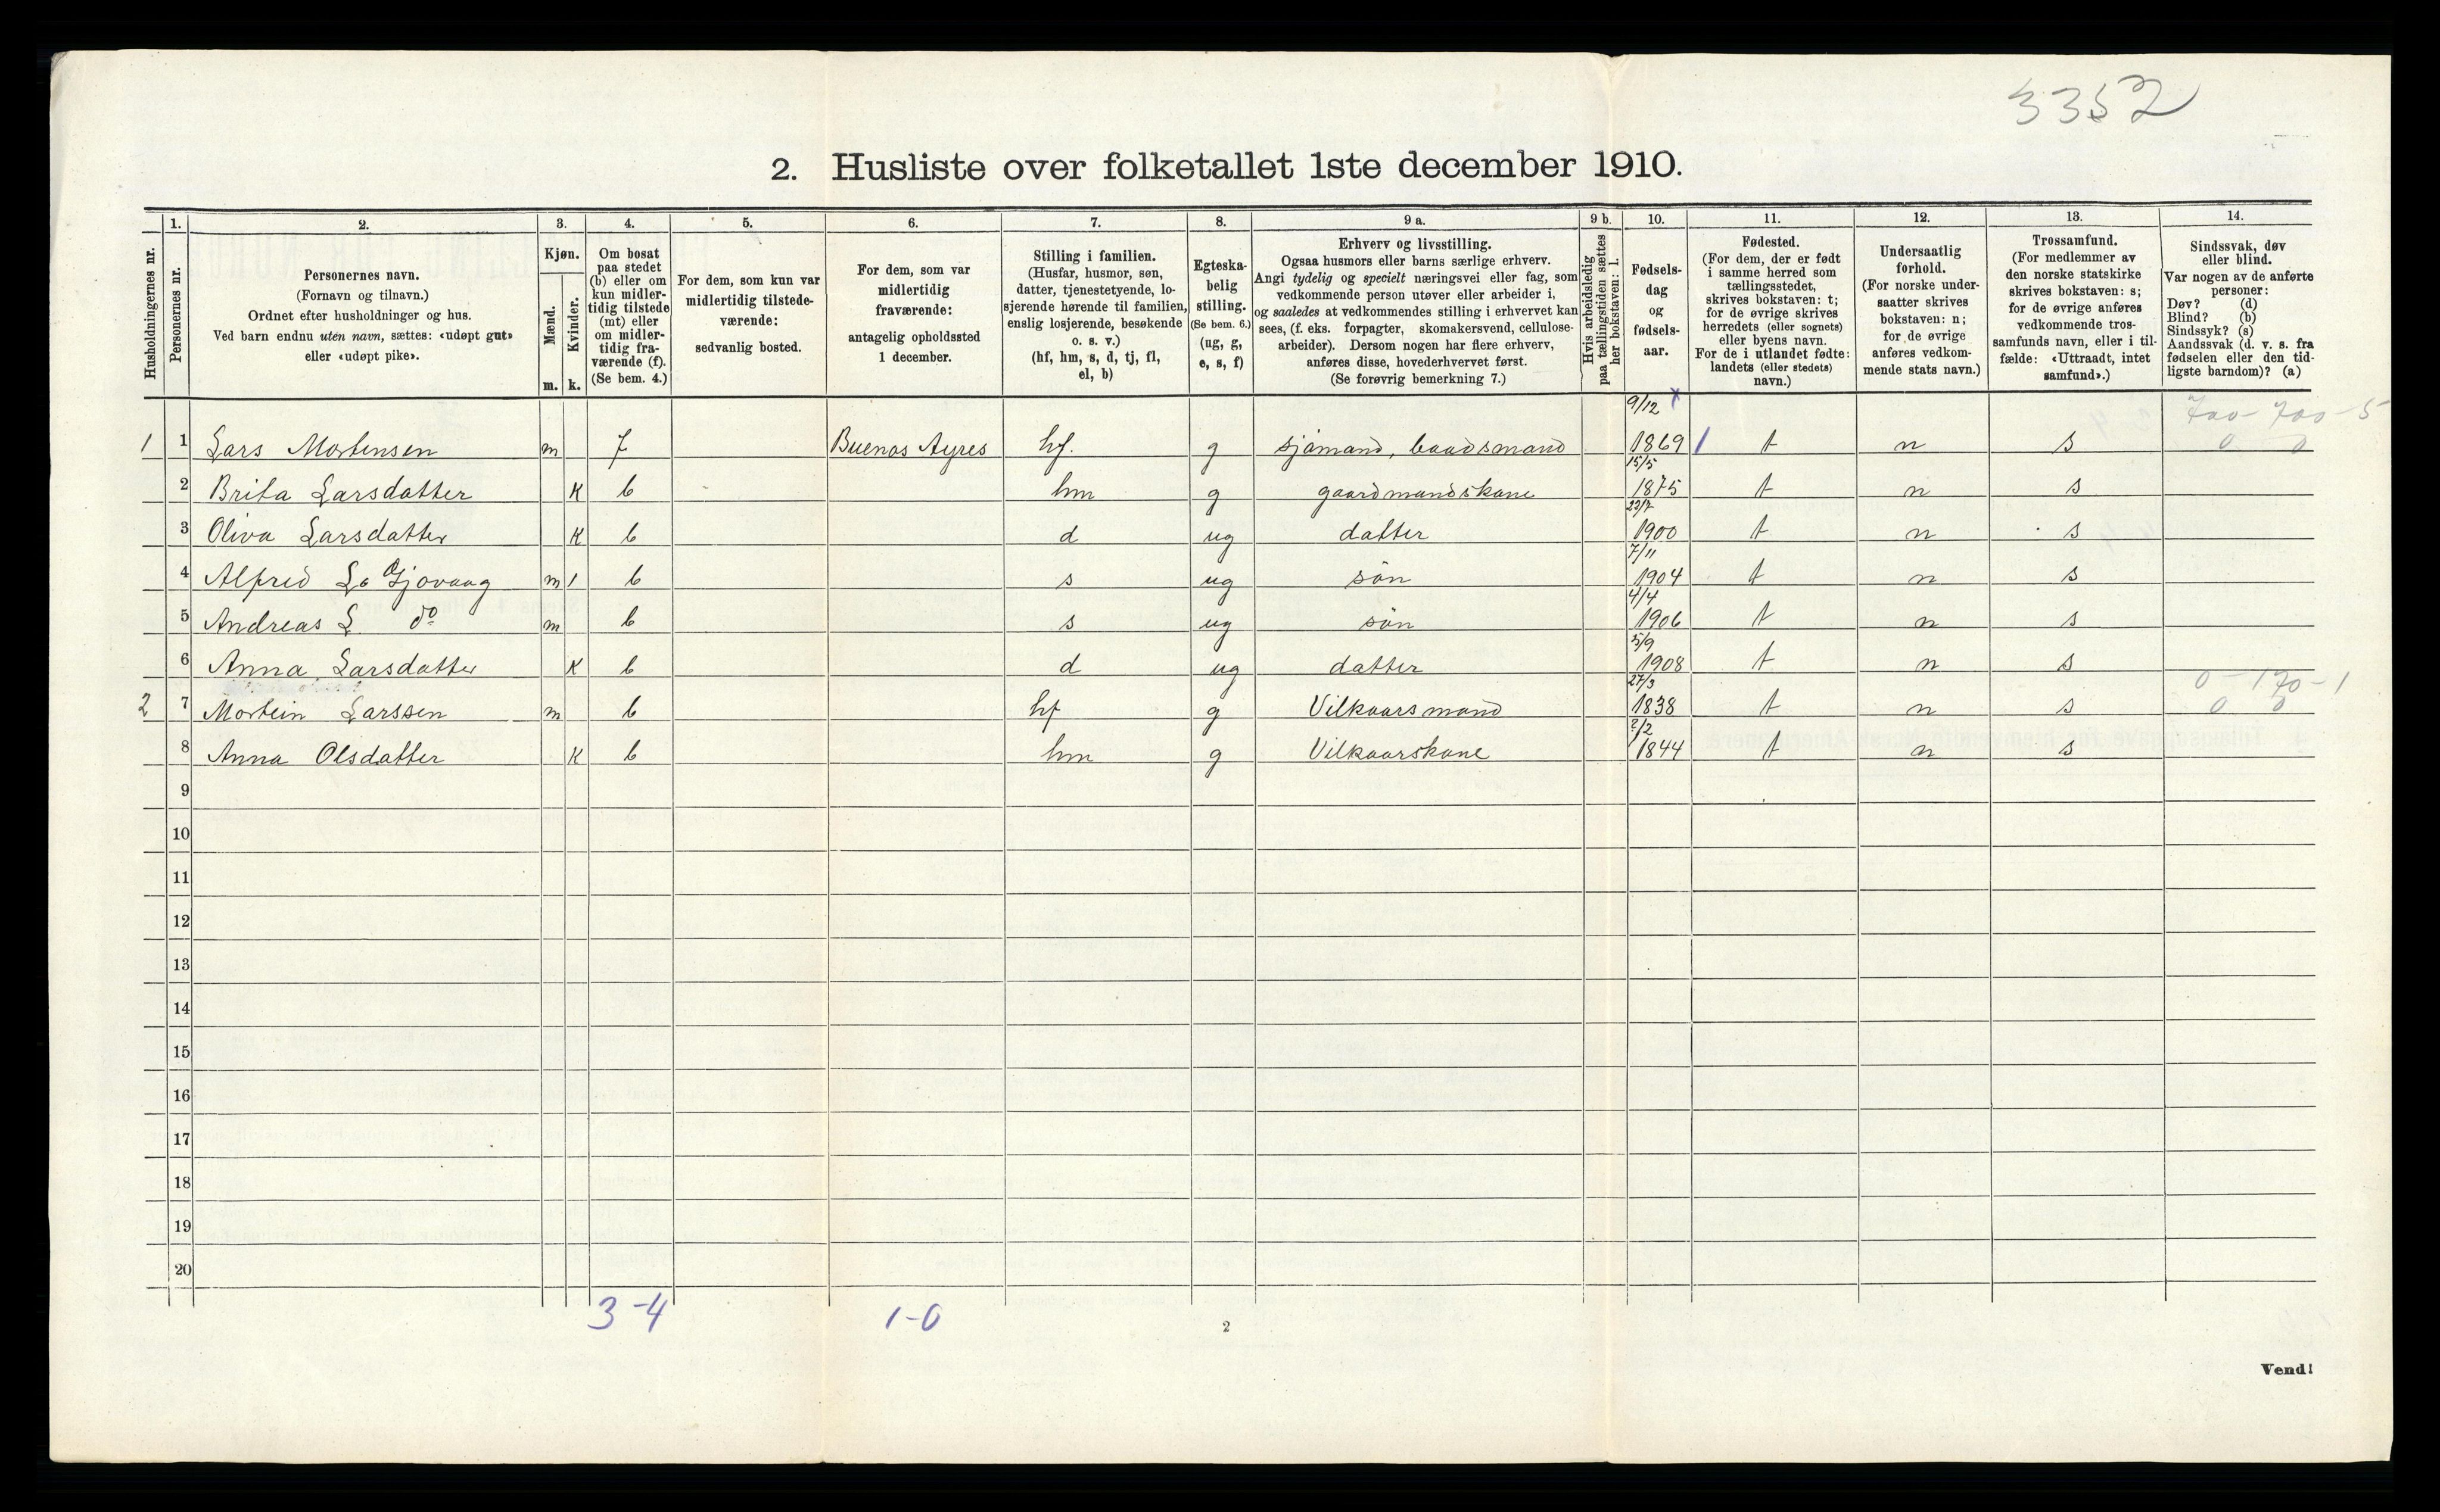 3352
2. Husliste over folketallet 1ste december 1910.
Husholdningernes nr.
1.
Personernes nr.
2.
Personernes navn.
(Fornavn og tilnavn.)
Ordnet efter husholdninger og hus.
Ved barn endnu uten navn, sættes: «udøpt gut»
eller «udøpt pike».
3.
Kjøn.
Mænd.
Kvinder.
m. k.
4.
Om bosat
paa stedet
(b) eller om
kun midler-
tidig tilstede
(mt) eller
om midler-
tidig fra-
værende (f).
(Se bem. 4.)
5.
For dem, som kun var
midlertidig tilstede-
værende:
sedvanlig bosted.
6.
For dem, som var
midlertidig
fraværende:
antagelig opholdssted
1 december.
7.
Stilling i familien.
(Husfar, husmor, søn,
datter, tjenestetyende, lo-
sjerende hørende til familien,
enslig losjerende, besøkende
o. s. v.)
(hf, hm, s, d, tj, fl,
el, b)
8.
Egteska-
belig
stilling.
(Se bem. 6.)
(ug, g,
e, s, f)
9 a.
Erhverv og livsstilling.
Ogsaa husmors eller barns særlige erhverv.
Angi tydelig og specielt næringsvei eller fag, som
vedkommende person utøver eller arbeider i,
og saaledes at vedkommendes stilling i erhvervet kan
sees, (f. eks. forpagter, skomakersvend, cellulose-
arbeider). Dersom nogen har flere erhverv,
anføres disse, hovederhvervet først.
(Se forøvrig bemerkning 7.)
9 b.
Hvis arbeidsledig
paa tællingstiden sættes
her bokstaven: l.
10.
Fødsels-
dag
og
fødsels-
aar.
11.
Fødested.
(For dem, der er født
i samme herred som
tællingsstedet,
skrives bokstaven: t;
for de øvrige skrives
herredets (eller sognets)
eller byens navn.
For de i utlandet fødte:
landets (eller stedets)
navn.)
12.
Undersaatlig
forhold.
(For norske under-
saatter skrives
bokstaven: n;
for de øvrige
anføres vedkom-
mende stats navn.)
13.
Trossamfund.
(For medlemmer av
den norske statskirke
skrives bokstaven: s;
for de øvrige anføres
vedkommende tros-
samfunds navn, eller i til-
fælde: «Uttraadt, intet
samfund».)
14.
Sindssvak, døv
eller blind.
Var nogen av de anførte
personer:
Døv? (d)
Blind? (b)
Sindssyk? (s)
Aandssvak (d. v. s. fra
fødselen eller den tid-
ligste barndom)? (a)
700-700-5
0 0
1 1 Lars Mortensen m f Buenos Ayres hf. g sjömand, baadsmand 9/12 1869 t n s
2 Brita Larsdatter K b hm g gaardmandskone 15/5 1875 t n s
3 Oliva Larsdatter K b d ug datter 22/7 1900 t n s
4 Alfred L. Gjovaag m b s ug sön 7/11 1904 t n s
5 Andreas L do m b s ug sön 4/4 1906 t n s
6 Anna Larsdatter K b d ug datter 5/9 1908 t n s
0-170-1
0 0
2 7 Mortein Larssen m b hf g Vilkaarsmand 27/3 1838 t n s
8 Anna Olsdatter K b hm g Vilkaarskone ?/2 1844 t n s
9
10
11
12
13
14
15
16
17
18
19
20
3-4
1-0
2
Vend!